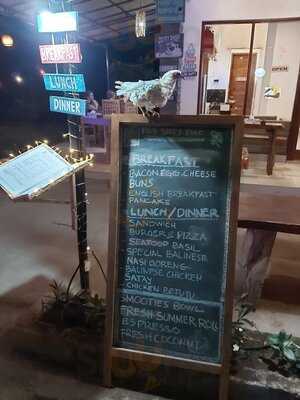 BREAKFAST
LUNCH
DINNER
OPEN
BREAKFAST
BACON.EGG.CHEESE
BUNS
ENGLISH BREAKFAST
PANCAKE
LUNCH/DINNER
SANDWICH
BURGERS PIZZA
SEAFOOD BASIL
SPECIAL BALINESE
NASI GORENG
BALINESE CHICKEN
SATAY
- CHICKEN BETUTU
SMOOTIES BOWL
FRESH SUMMER ROLL
ESPRESSO
FRESH COCONUT